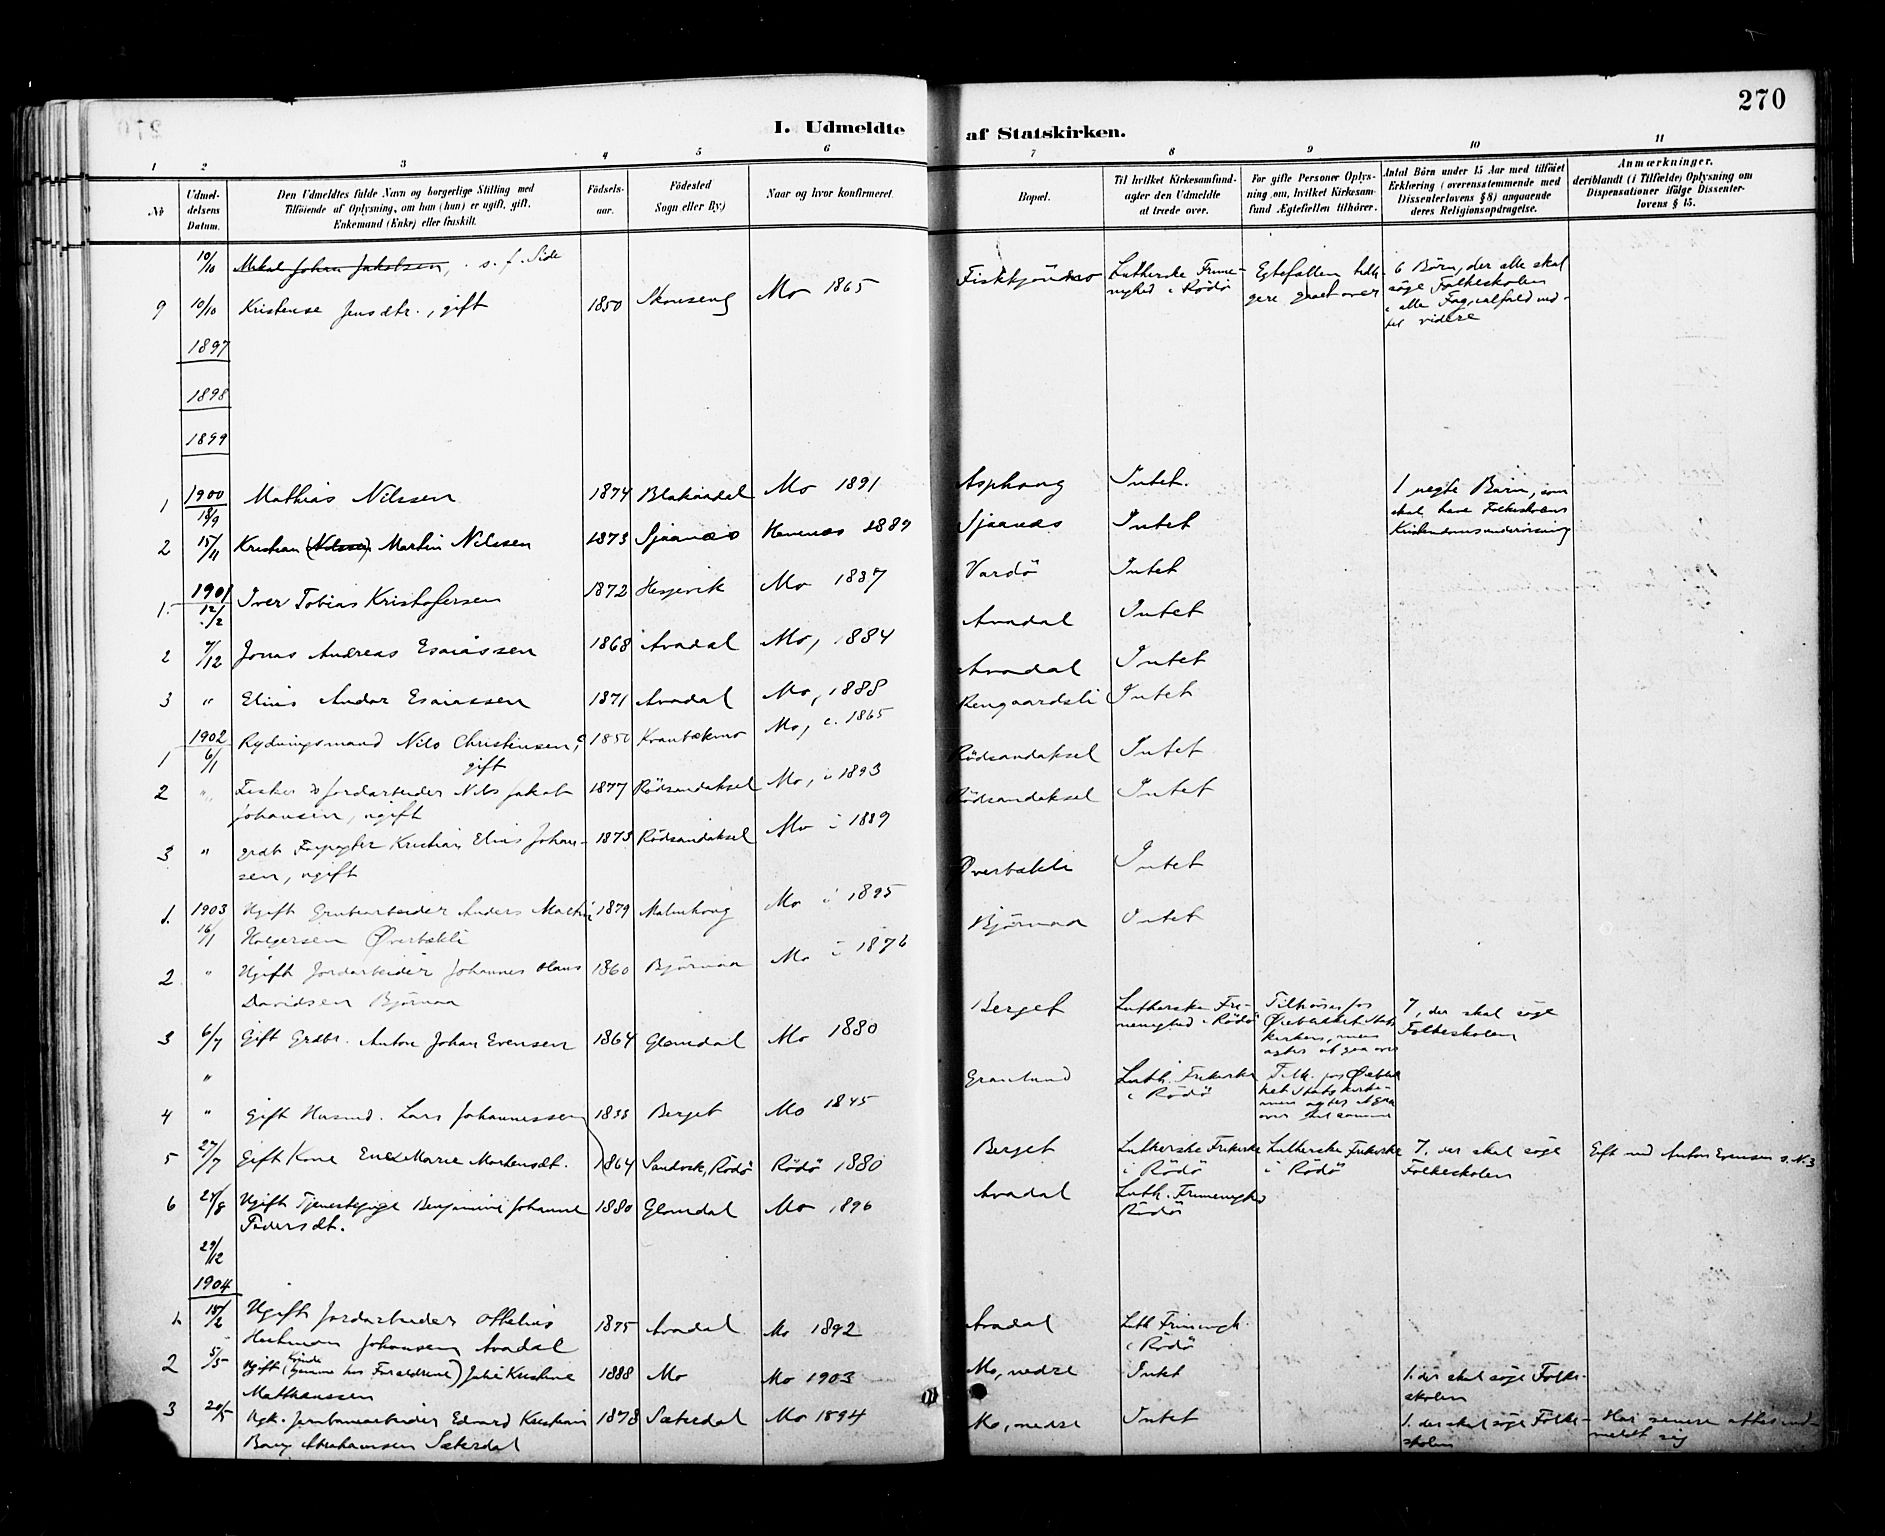 270
I. Udmeldte af Statskirken.
1 2 3 4 5 6 7 8 9 10 11
No
Udmel-
delsens
Datum.
Den Udmeldtes fulde Navn og borgerlige Stilling med
Tilföiende af Oplysning, om han (hun) er ugift, gift,
Enkemand (Enke) eller fraskilt.
Födsels-
aar.
Födested
Sogn eller By.)
Naar og hvor konfirmeret.
Bopæl.
Til hvilket Kirkesamfund
agter den Udmeldte
at træde over.
For gifte Personer Oplys-
ning om, hvilket Kirkesam-
fund Ægtefællen tilhörer.
Antal Börn under 15 Aar med tilföiet
Erklæring (overensstemmende med
Dissenterlovens § 8) angaaende
deres Religionsopdragelse.
Anmærkninger,
deriblandt (i Tilfælde) Oplysning om
Dispensationer ifölge Dissenter-
lovens § 15.
10/10 Mikal Johan Jakobsen, s. f. Side
9 10/10 Kristense Jensdtr., gift 1850 Skonseng Mo 1865 Fisktjönmo Lutherske Frime-
nighed i Rödö
Egtefællen tidli-
gere gaaet over
6 Börn, der alle skal
söge Folkeskolen
i alle Fag, ialfald ind-
til videre
1897
1898
1899
1900
1 18/9 Mathias Nilssen 1874 Blakaadal Mo 1891 Asphaug Intet. 1 uegte Barn, som
skal have Folkeskolens
Kristendomsundervisning
2 15/11 Kristian (Nilssen) Martin Nilssen 1873 Sjaanæs Hemenæs 1889 Sjaanæs Intet
1901
1. 12/2 Iver Tobias Kristofersen 1872 Hesjevik Mo 1887 Vardö Intet
2 7/12 Jonas Andreas Esaiassen 1868 Avadal Mo, 1884 Avadal Intet
3 " Elius Andor Esaiassen 1871 Avadal Mo, 1888 Avadal Intet
1902
1 6/1 Rydningsmand Nils Christensen,
gift
1850 Mo, c. 1865 Rengaardsli Intet
2 " Fisker & Jordarbeider Nils Jakob
Johansen, ugift
1877 Rödsandaksel Mo, i 1893 Rödsandaksel Intet
3 " grdb. Forpagter Kristian Elius Johan-
sen, ugift
1873 Rödsandaksel Mo i 1889 Rödsandaksel Intet
1. 1903
16/1
Ugift Grubearbeider Anders Martin
Holgersen Överbækli
1879 Malmhaug Mo i 1895 Överbækli Intet
2 " Ugift Jordarbeider Johannes Olaus
Davidsen Björnaa
1860 Björnaa Mo i 1876 Björnaa Intet
3 6/7 Gift Grdbr. Anton Johan Evensen 1864 Glomdal Mo 1880 Berget Lutherske Fri-
menighed i Rödö
Tilhörer for
Öieblikket Stats
kirken, men
agter at gaa over
7, der skal söge
Folkeskolen
"
4 " Gift Husmd. Lars Johannessen 1833 Berget Mo Granlund Luth. Frikirke
i Rödö
Tilh. for Öieblik
ket Statskirke-
men agter at gaa
over til samme
5 27/7 Gift Kone Marie Mortensdt. 1864 Sandvik, Rödö Rödö 1880 Berget Lutherske Frikirke
i Rödö
Lutherske Frikirke
i Rödö
7. der skal söge
Folkeskolen
Gift med Anton Evensen s. N. 3
6 27/8 Ugift Tjenestepige Benjamine Johanne
Pedersdt.
1880 Glomdal Mo 1896 Avadal Luth. Frimenighed
Rödö
29/12
1904
1. 15/2 Ugift Jordarbeider Othelius
Johansen Avadal
1875 Avadal Mo 1892 Avadal Luth Frimenigh.
i Rödö
2 5/5 Ugift (Kvinde
hjemme hos Forældrene) Julie Kristine
Mathæussen
1888 Mo Mo 1903 Mo, nedre Intet 1. der skal söge Folke-
skolen
3 20/5 Ugk. Jernbanearbeider Edvard Kristian
Abrahamsen Sæterdal
1878 Sæterdal Mo 1894 Mo, nedre Intet 1. der skal söge Folke-
skolen
Har senere atter ind-
meldt sig